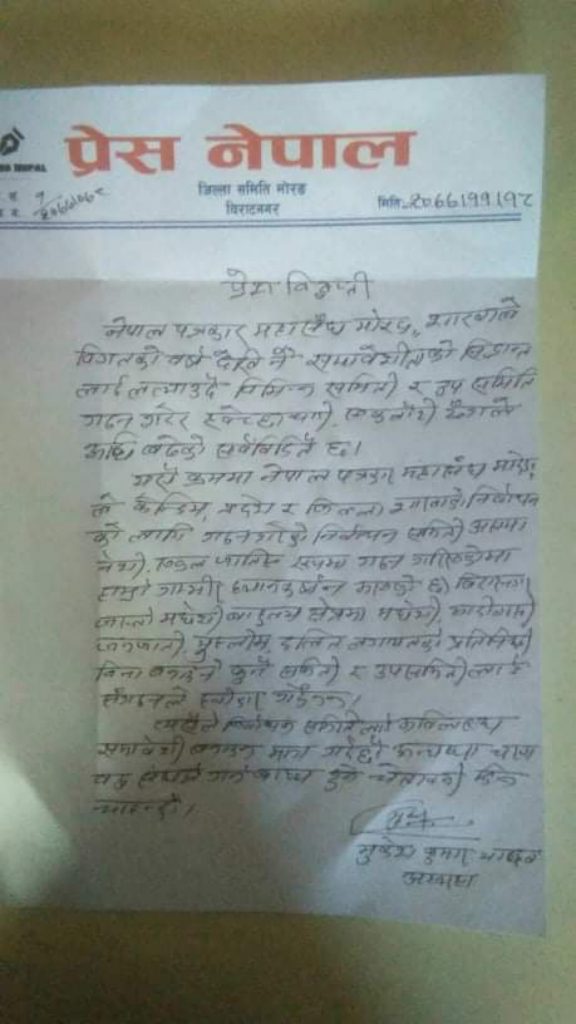 प्रेस नेपाल
जिल्ला समिति मोरङ
विराटनगर
मिति:
प्रेस विज्ञप्ती
नेपाल पत्रकार महासंघ मोरङ, शाखाले
विगतको वर्ष देखि नै समावेशीताको सिद्धान्त
लाई लत्याउदै विभिन्न समिती र उप समिति
गठन गरेर
अघि बढेको सर्वविदितै छ।
यसै क्रममा नेपाल पत्रकार महासंघ मोरङ
ले केन्द्रिय, प्रदेश र जिल्ला शाखाको निर्वाचन
को लागि गठन गरेको निर्वाचन समिती असमा
वेशी, एकल जातिय रुपमा गठन गरिएकोमा
हाम्रो गम्भीर ध्यानाकर्षन भएको छ। विराटनगर
जस्तो मधेशी बाहुल्य क्षेत्रमा मधेशी, आदीवासी
जनजाती, मुस्लीम, दलित लगायतको प्रतिनिधी
विना बनाइने कुनै समिती र उपसमिती लाई
संगठनले स्वीकार गर्दैनन।
त्यसैले निर्वाचन समिती लाई अविलम्ब
समावेशी बनाउन माग गर्दछौ। अन्यथा
गर्न बाध्य हुने चेतावनी दिन
चाहन्छौ।
मुकेश कुमार यादव
अध्यक्ष